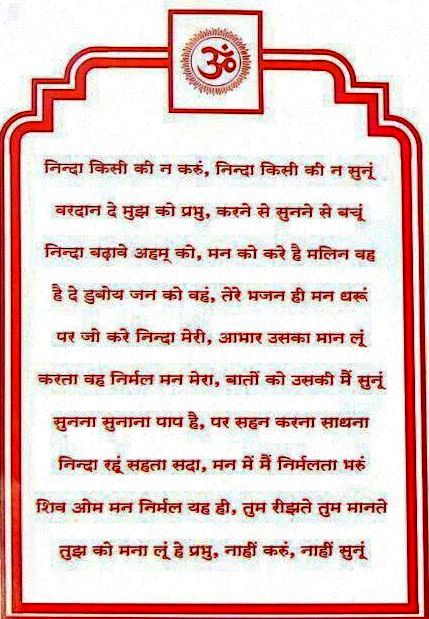 ॐ
निन्दा किसी की न करुं, निन्दा किसी की न सुनूं
वरदान दे मुझ को प्रभु, करने से सुनने से बचूं
निन्दा बढ़ावे अहम् को, मन को करे है मलिन वह
है दे डुबोय जन को वहं, तेरे भजन ही मन धरूं
पर जो करे निन्दा मेरी, आभार उसका मान लूं
करता वह निर्मल मन मेरा, बातों को उसकी मैं सुनूं
सुनना सुनाना पाप है, पर सहन करना साधना
निन्दा रहूं सहता सदा, मन में मैं निर्मलता भरुं
शिव ओम मन निर्मल यह ही, तुम रीझते तुम मानते
तुझ को मना लूं हे प्रभु, नाहीं करुं, नाहीं सुनूं